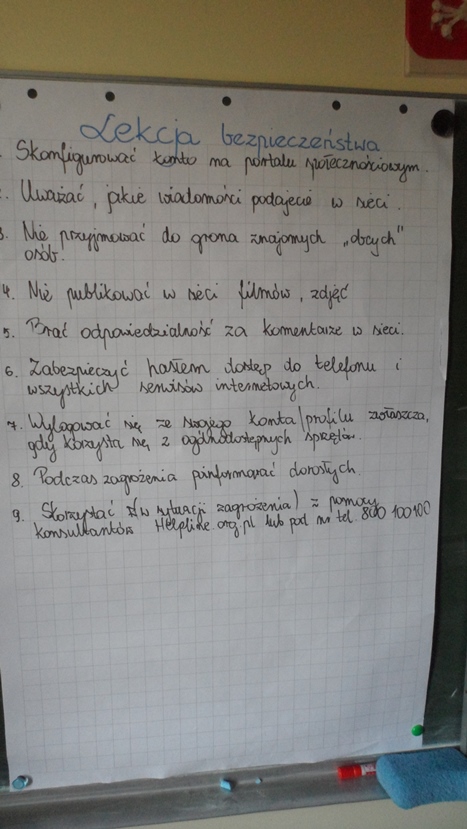 Lekcja bezpieczeństwa
Skonfigurować konto na portalu społecznościowym.
Uważać, jakie wiadomości podajecie w sieci.
3. Nie przyjmować do grona znajomych „obcych"
osób.
4. Nie publikować w sieci filmów, zdjęć
5. Brać odpowiedzialność za komentarze w sieci.
6. Zabezpieczyć hasłem dostęp do telefonu i
wszystkich serwisów internetowych.
7. Wylogować się ze swojego konta/profilu zwłaszcza,
gdy korzysta się z ogólnodostępnych sprzętów.
8. Podczas zagrożenia poinformować dorosłych.
9. Skorzystać (w sytuacji zagrożenia) z pomocy
konsultantów Helpline.org.pl lub pod nr tel. 800 100 100